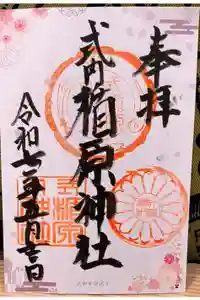 奉拝
式内楯原神社
令和七年五月三日